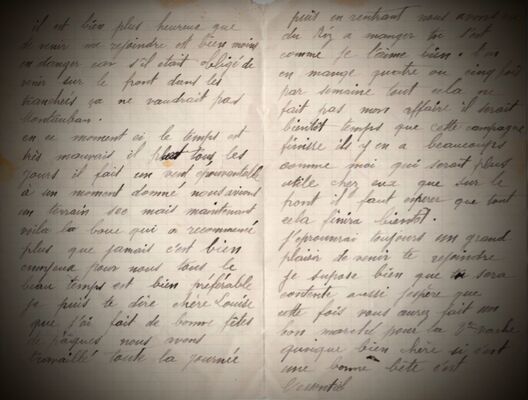 il est bien plus heureux que
de venir me rejoindre et bien moins
en danger car s'il était obligé de
venir sur le front dans les
tranchées ça ne vaudrait pas
Montauban.
en ce moment ci le temps est
très mauvais il pleut tous les
jours il fait un vent épouvantable
à un moment donné nous avions
un terrain sec mais maintenant
voila la boue qui a recommencé
plus que jamais c'est bien
ennuyeux pour nous tous le
beau temps est bien préférable
je puis te dire chère Louise
que j'ai fait de bonne fêtes
de pâques nous avons
travaillé toute la journée
puis en rentrant nous avons eu
du Riz a manger tu sait
comme je l'aime bien.
en mange quatre ou cinq fois
par semaine tout cela ne
fait pas mon affaire il serait
bientôt temps que cette campagne
finisse ils y en a beaucoups
comme moi qui serait plus
utile chez eux que sur le
front il faut espérer que tout
cela finira bientot.
J'éprouvrai toujours un grand
plaisir de venir te rejoindre
je supose bien que tu sera
contente aussi j'espère que
cette fois vous aurez fait un
bon marché pour la vache
quoique bien chère si c'est
une bonne bête c'est
l'essentiel